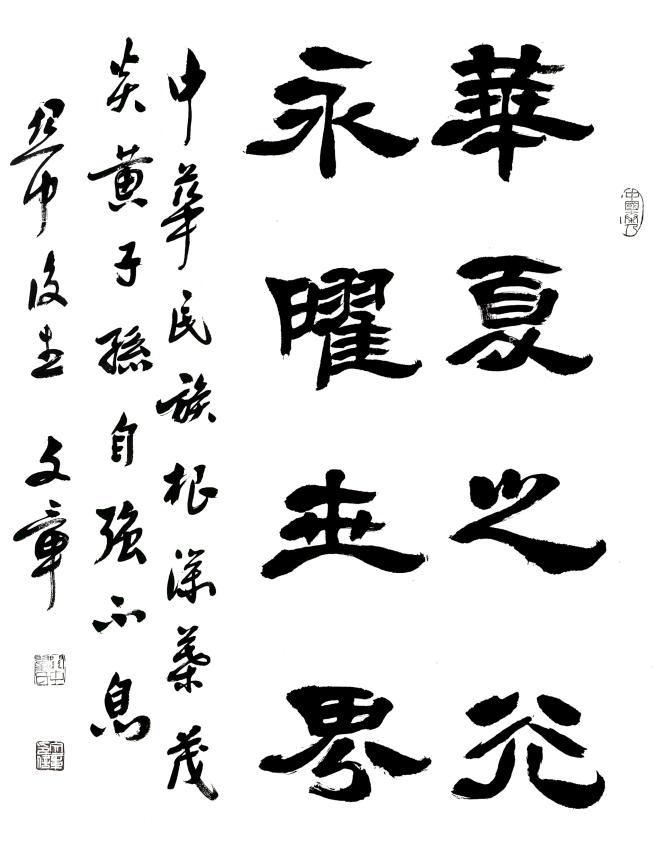 華夏之光
永曜世界
中華民族根深葉茂
炎黄子孫自強不息
中 文章